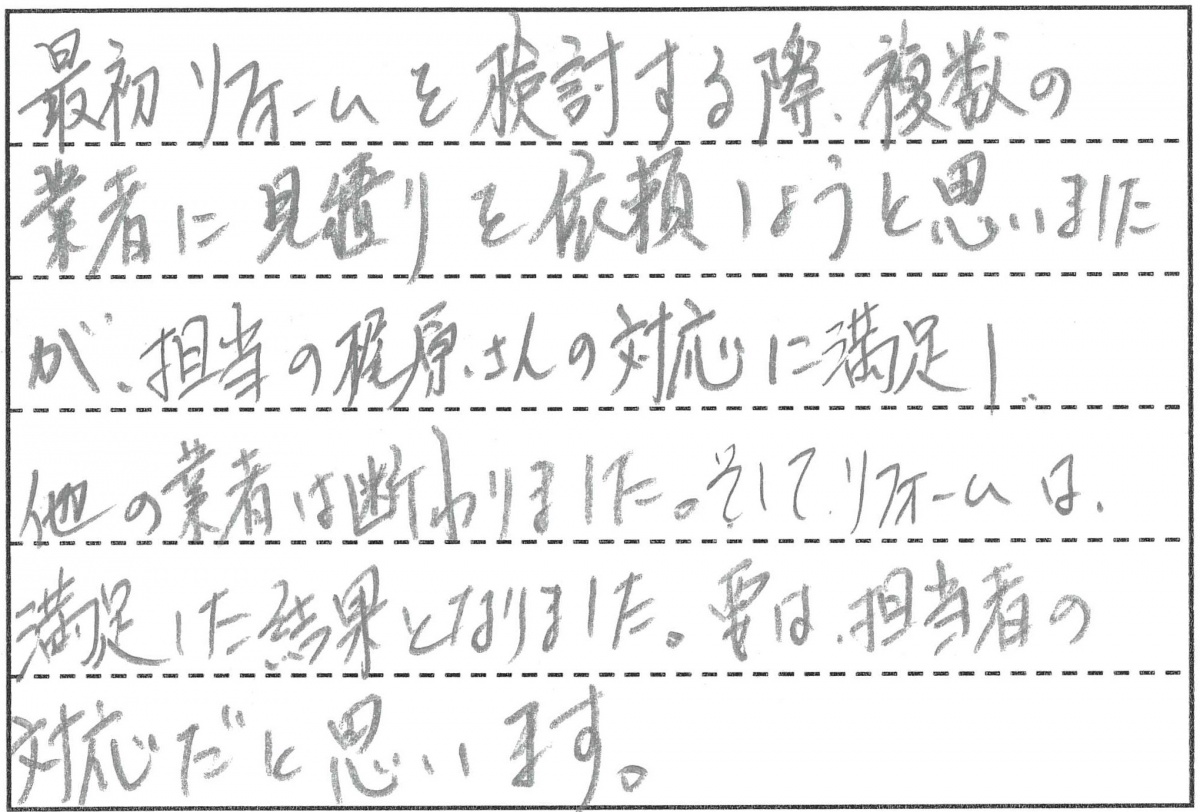 最初リフォームを検討する際、複数の
業者に見積りを依頼しようと思いました
が、担当の梶原さんの対応に満足し、
他の業者は断わりました。そしてリフォームは、
満足した結果となりました。要は、担当者の
対応だと思います。